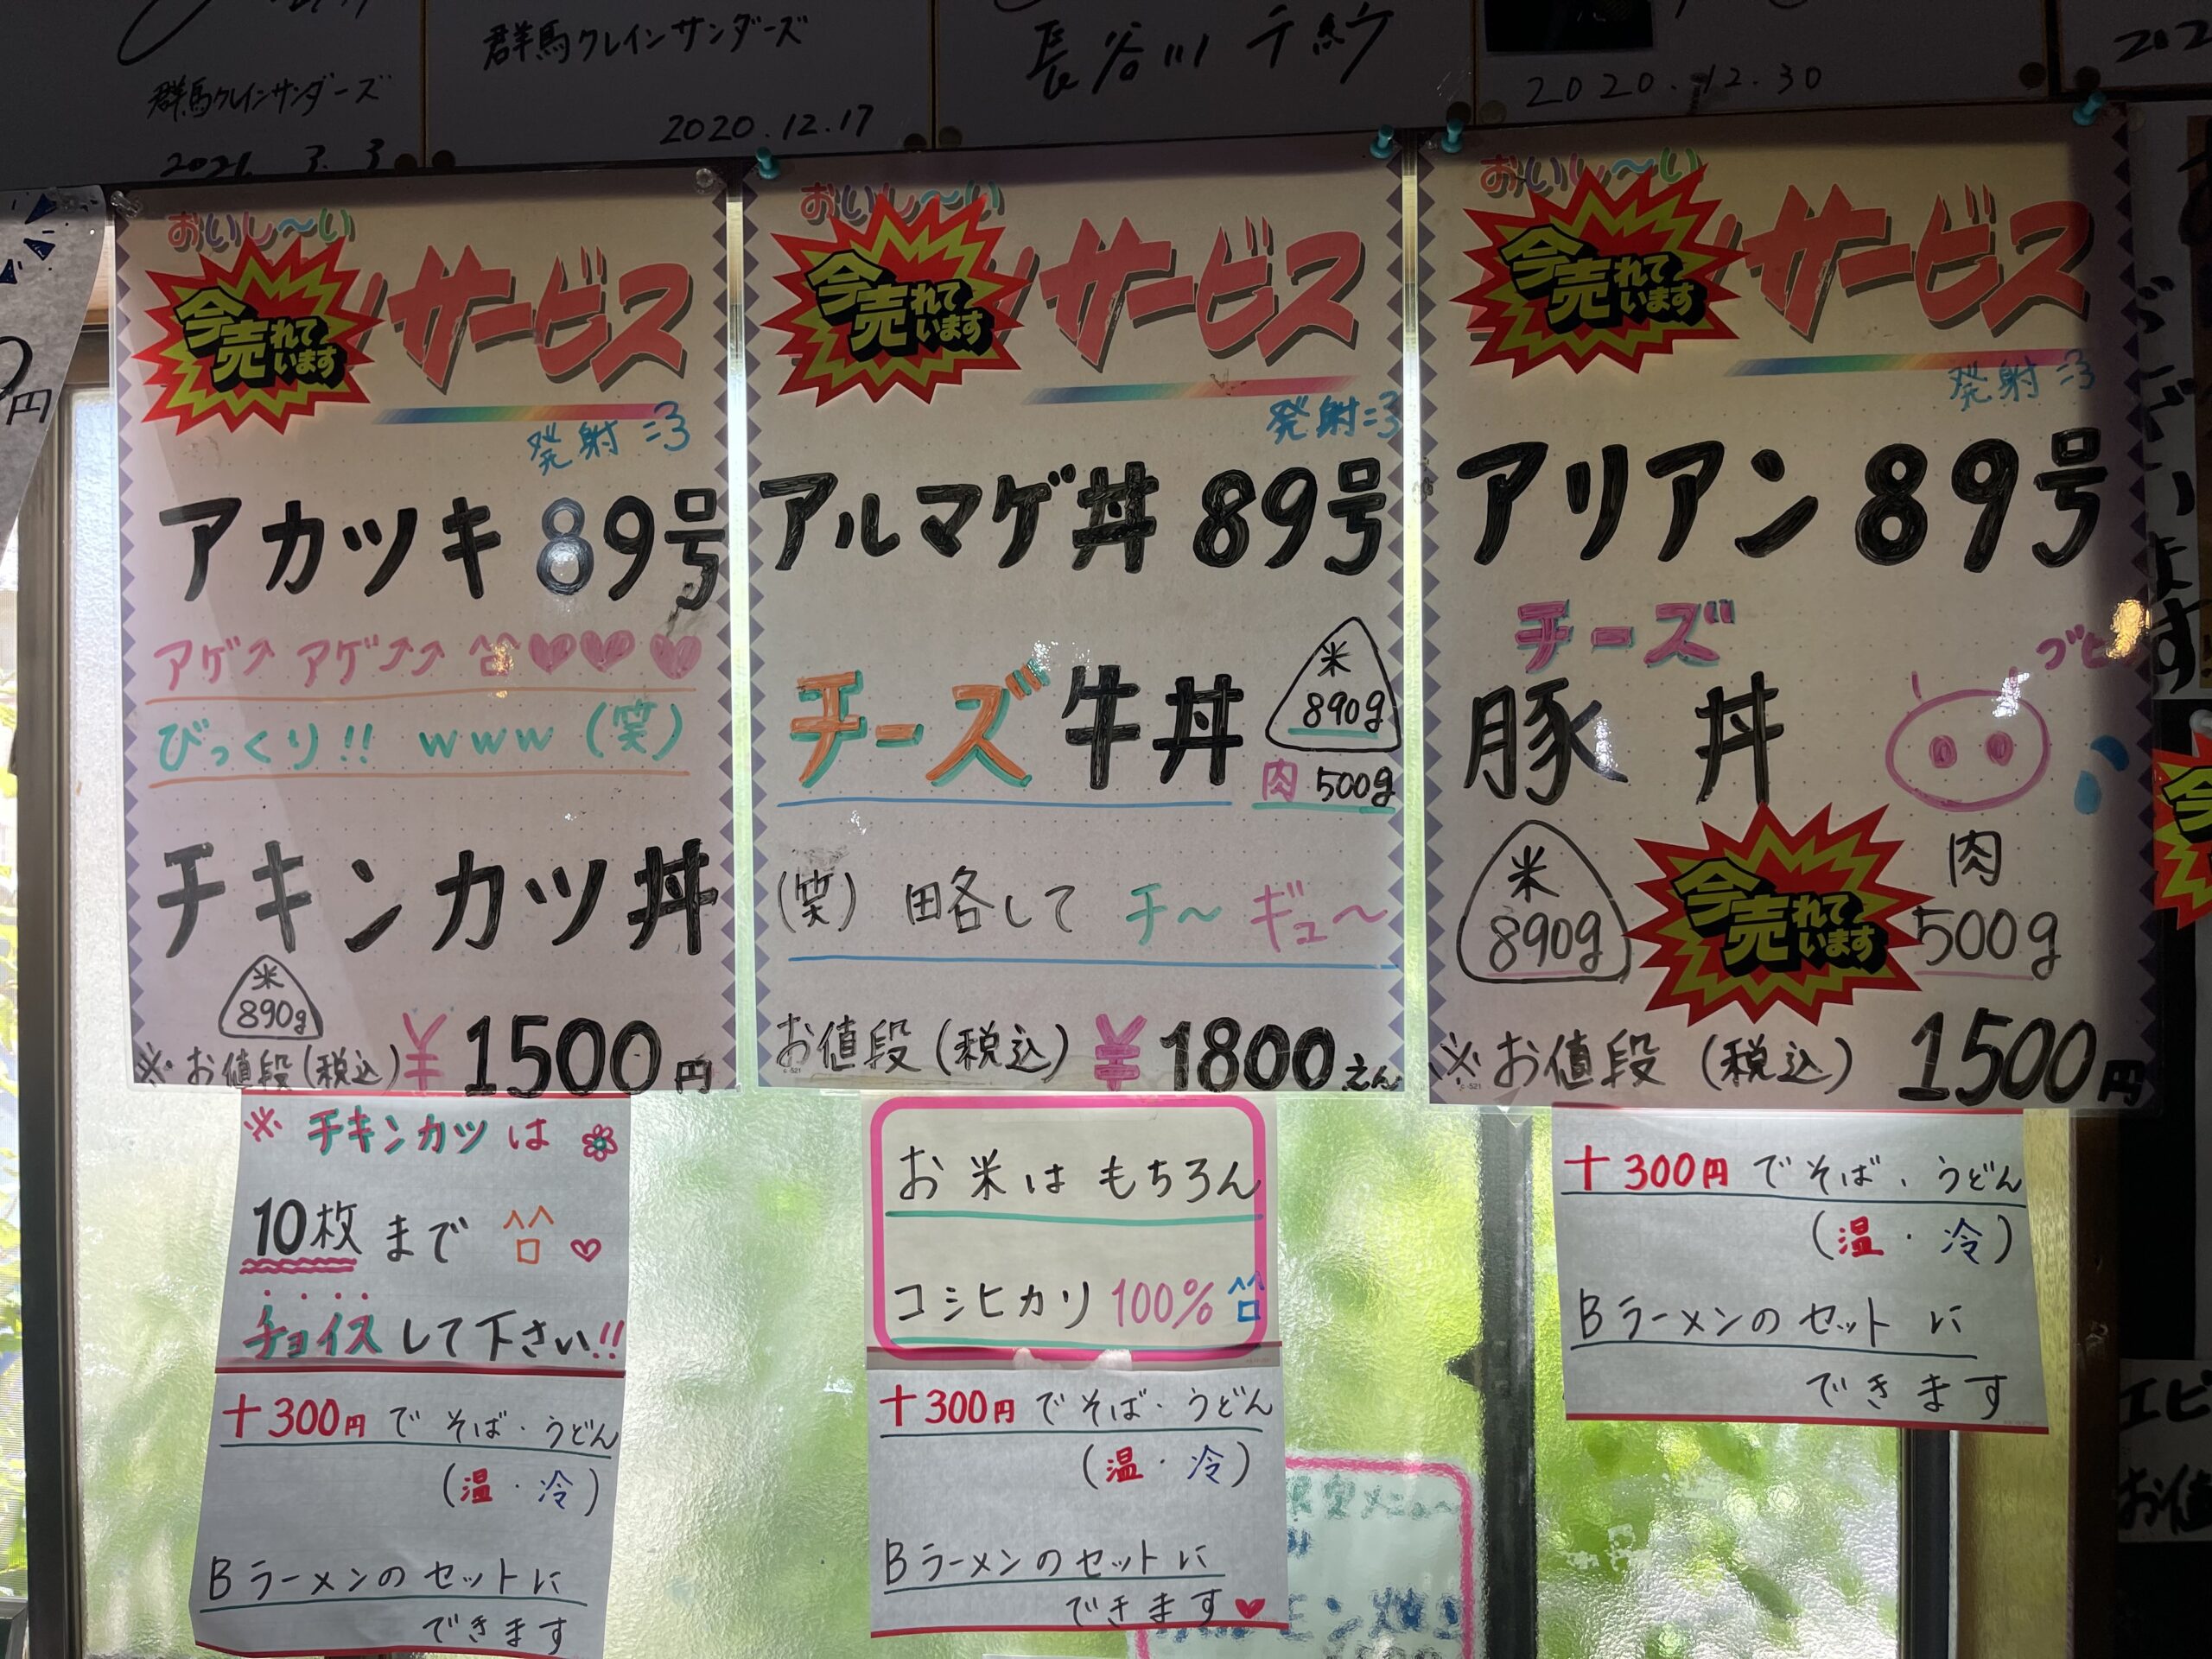 群馬クレインサンダーズ
2021. 3. 3
群馬クレインサンダーズ
2020.12.17
長谷川
2020.12.30
円
おいし〜い
今売れています
サービス
発射=3
アカツキ 89号
アゲ↗ アゲ↗↗ ^^ロ♥♥♥
びっくり!! www (笑)
チキンカツ丼
米
890g
※お値段(税込)¥1500円
※チキンカツは
10枚まで ^^ロ♡
チョイスして下さい!!
+300円でそば・うどん
(温・冷)
Bラーメンのセットに
できます
おいし〜い
今売れています
サービス
発射=3
アルマゲ丼 89号
チーズ牛丼
米
890g
肉 500g
(笑) 略して チ〜ギュ〜
お値段(税込) ¥1800えん
お米はもちろん
コシヒカリ 100% ^^ロ
+300円でそば・うどん
(温・冷)
Bラーメンのセットに
できます♥
おいし〜い
今売れています
サービス
発射=3
アリアン 89号
チーズ
豚丼
ブヒ
米
890g
今売れています
肉
500g
※お値段(税込) 1500円
+300円でそば、うどん
(温・冷)
Bラーメンのセットに
できます